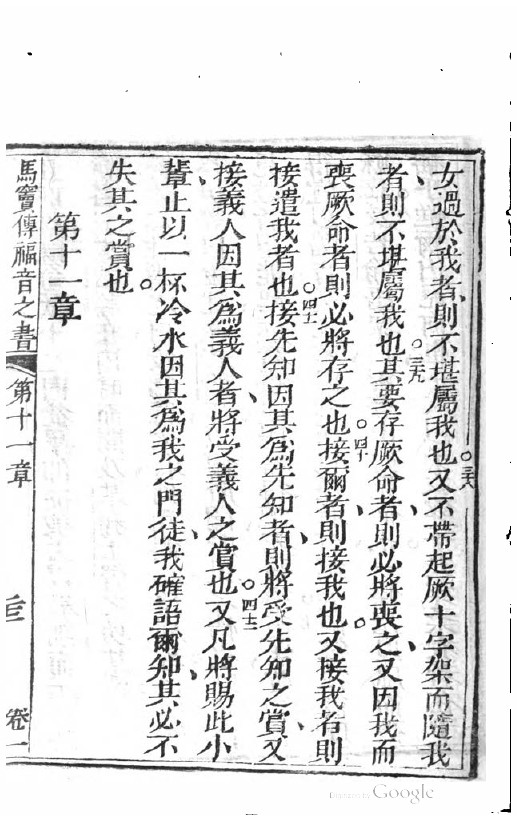 女過於我者、則不堪屬我也。三八又不帶起厥十字架而隨我
者、則不堪屬我也。三九其要存厥命者、則必將喪之、又因我而
喪厥命者、則必將存之也。四十接爾者、則接我也。又接我者、則
接遣我者也。四一接先知因其爲先知者、則將受先知之賞、又
接義人因其爲義人者、將受義人之賞也。四二又凡將賜此小
輩、止以一杯冷水、因其爲我之門徒、我確語爾知、其必不
失其之賞也。
第十一章
馬竇傳福音之書 第十一章 卷一
Digitized by Google